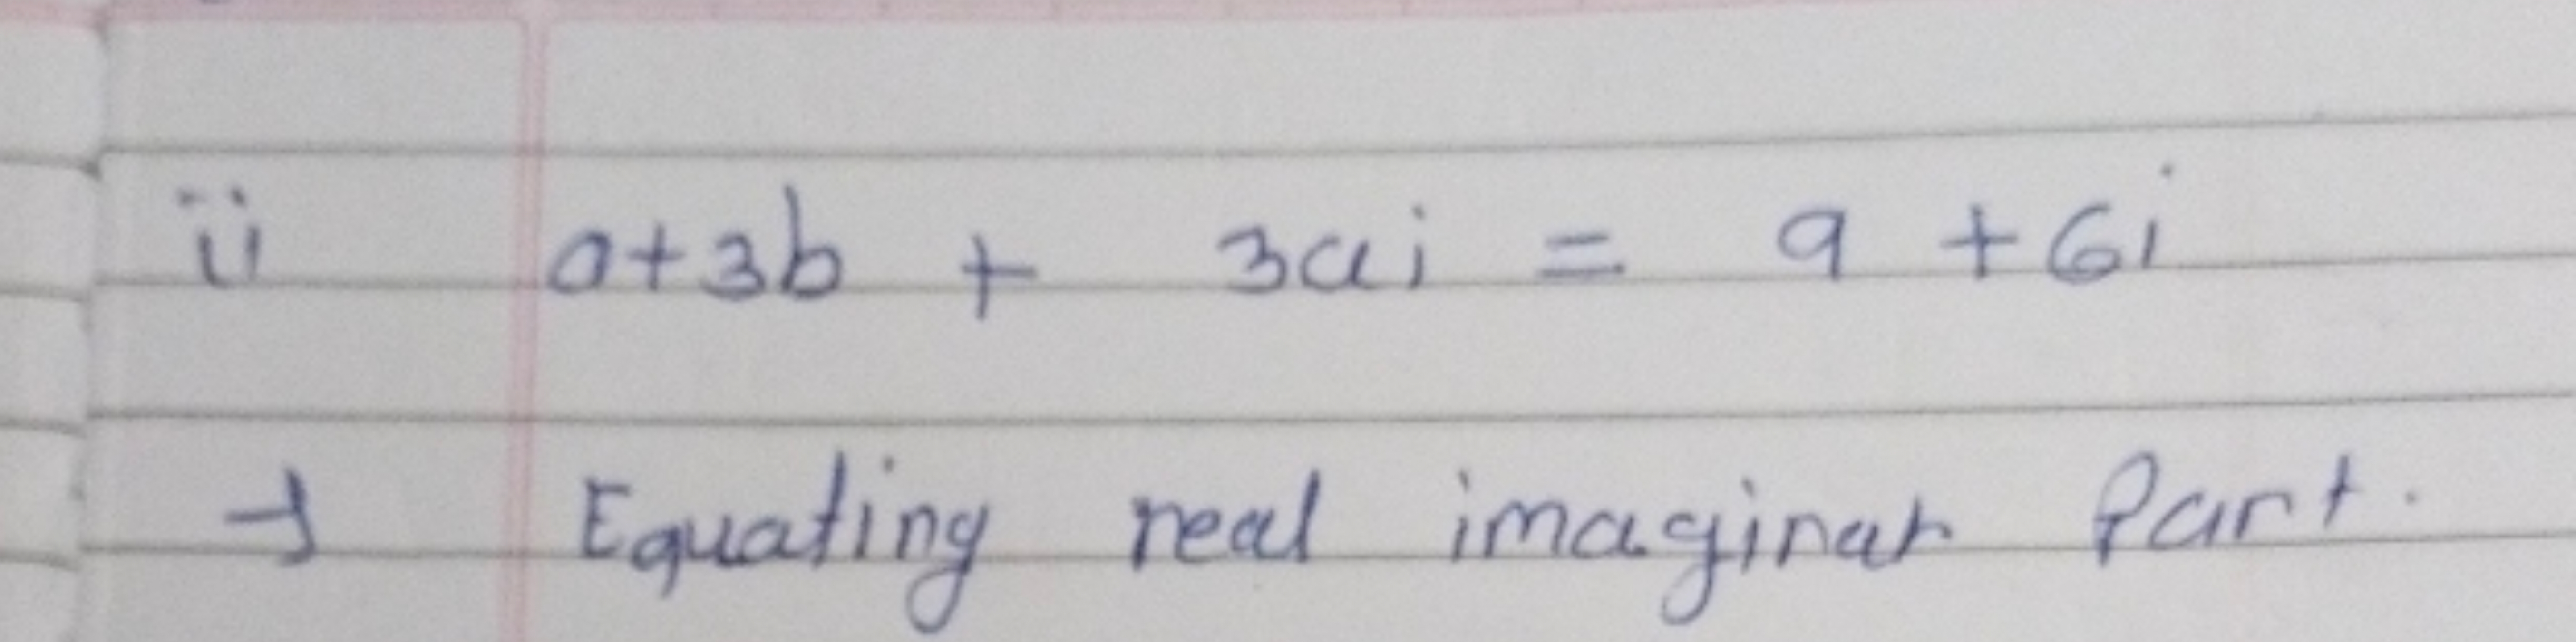 ii a+3b + 3ai = 9 +6i
→ Equating real imaginar Part.